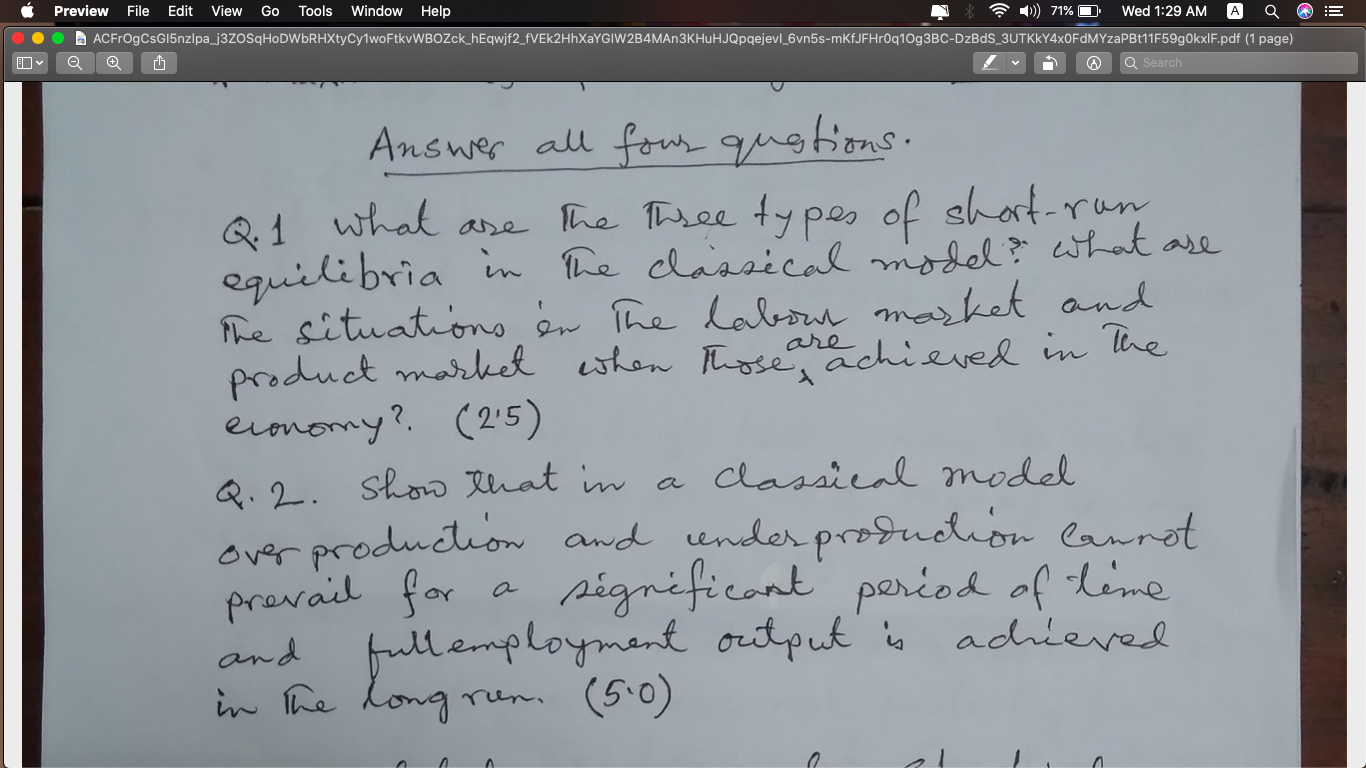 Preview File Edit View Go Tools Window Help 71% Wed 1:29 AM A
ACFrOgCsGI5nzlpa_j3ZOSqHoDWbRHXtyCy1woFtkvWBOZck_hEqwjf2_fVEk2HhXaYGIW2B4MAn3KHuHJQpqejevl_6vn5s-mKfJFHr0q1Og3BC-DzBdS_3UTKkY4x0FdMYzaPBt11F59g0kxlF.pdf (1 page)
Search
Answer all four questions.
Q.1 What are The Three types of short-run
equilibria in The classical model? What are
The situations in The labour market and
product market when Those are achieved in The
economy?. (2.5)
Q.2. Show that in a classical model
over production and underproduction cannot
prevail for a significant period of time
and full employment output is achieved
in The long run. (5.0)